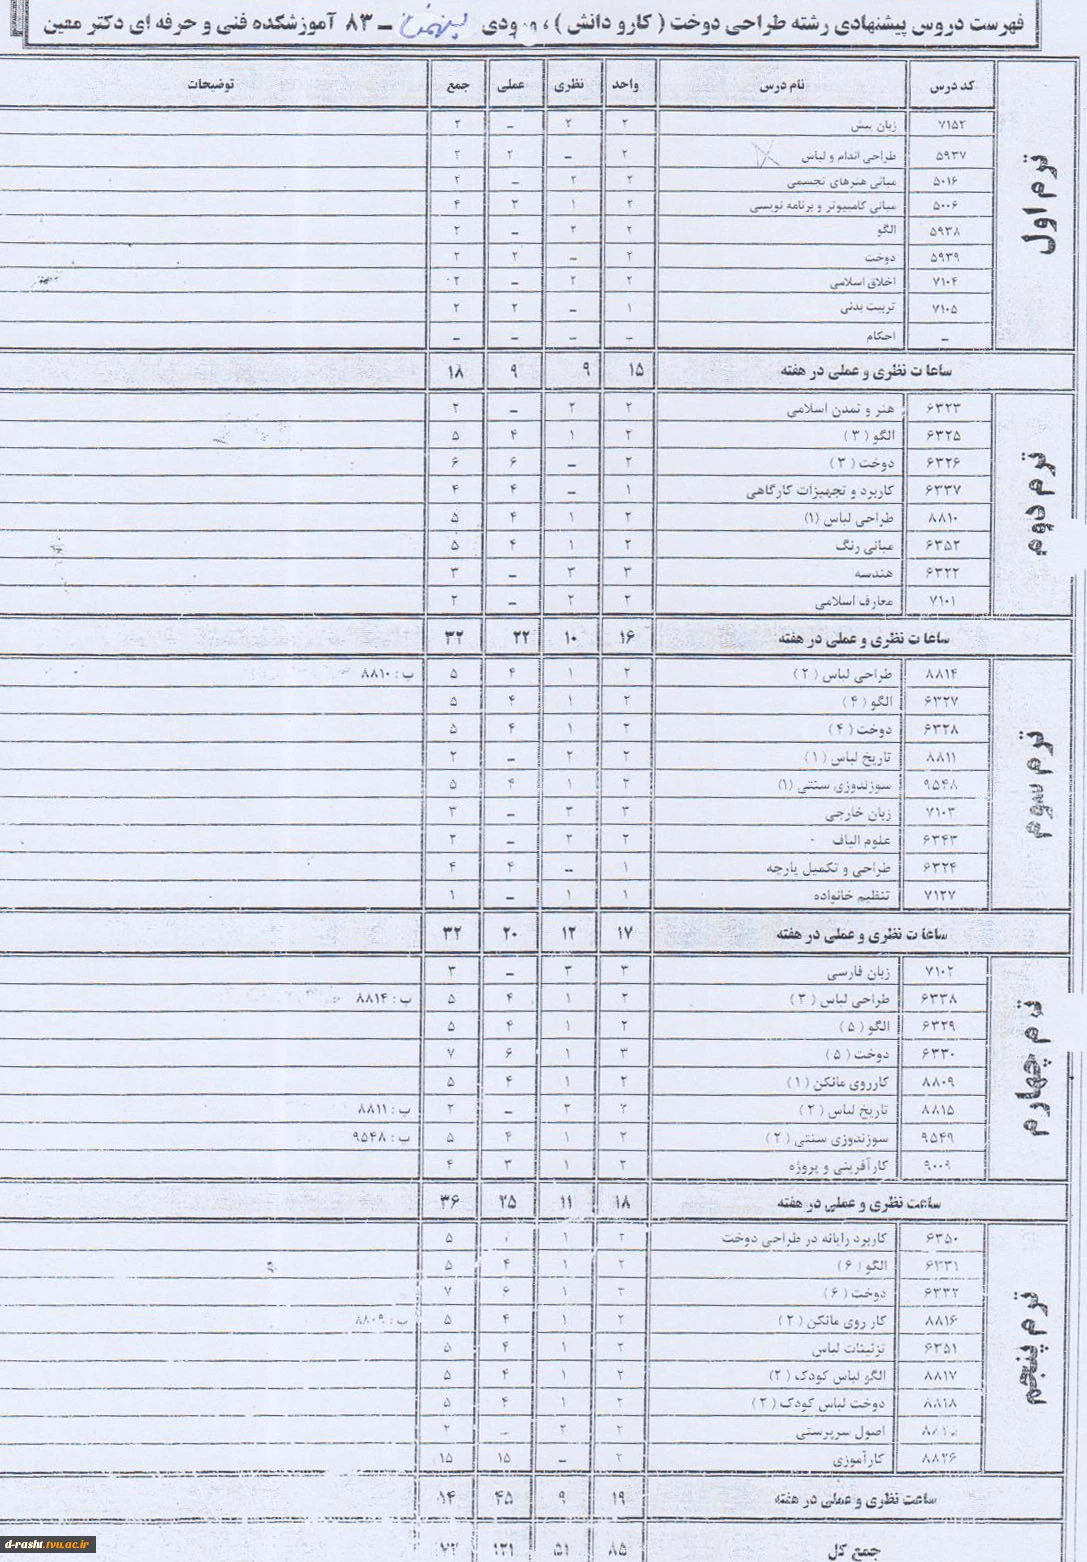 فهرست دروس پیشنهادی رشته طراحی دوخت ( کارو دانش ) ، ورودی بهمن ــ ۸۳ آموزشکده فنی و حرفه ای دکتر معین
کد درس نام درس واحد نظری عملی جمع توضیحات
ترم اول
۷۱۵۲ زبان پیش ۲ ۲ – ۲
۵۹۳۷ طراحی اندام و لباس ۲ – ۲ ۲
۵۰۱۶ مبانی هنرهای تجسمی ۲ ۲ – ۲
۵۰۰۶ مبانی کامپیوتر و برنامه نویسی ۲ ۱ ۳ ۴
۵۹۳۸ الگو ۲ ۲ – ۲
۵۹۳۹ دوخت ۲ – ۲ ۲
۷۱۰۴ اخلاق اسلامی ۲ ۲ – ۲
۷۱۰۵ تربیت بدنی ۱ – ۲ ۲
– احکام – – – –
ساعات نظری و عملی در هفته ۱۵ ۹ ۹ ۱۸
ترم دوم
۶۳۲۳ هنر و تمدن اسلامی ۲ ۲ – ۲
۶۳۲۵ الگو ( ۳ ) ۲ ۱ ۴ ۵
۶۳۲۶ دوخت ( ۳ ) ۲ – ۶ ۶
۶۳۳۷ کاربرد و تجهیزات کارگاهی ۱ – ۴ ۴
۸۸۱۰ طراحی لباس (۱) ۲ ۱ ۴ ۵
۶۳۵۲ مبانی رنگ ۲ ۱ ۴ ۵
۶۳۲۲ هندسه ۳ ۳ – ۳
۷۱۰۱ معارف اسلامی ۲ ۲ – ۲
ساعات نظری و عملی در هفته ۱۶ ۱۰ ۲۲ ۳۲
ترم سوم
۸۸۱۴ طراحی لباس ( ۲ ) ۲ ۱ ۴ ۵ ب : ۸۸۱۰
۶۳۲۷ الگو ( ۴ ) ۲ ۱ ۴ ۵
۶۳۲۸ دوخت ( ۴ ) ۲ ۱ ۴ ۵
۸۸۱۱ تاریخ لباس ( ۱ ) ۲ ۲ – ۲
۹۵۴۸ سوزندوزی سنتی (۱) ۲ ۱ ۴ ۵
۷۱۰۳ زبان خارجی ۳ ۳ – ۳
۶۳۴۳ علوم الیاف ۲ ۲ – ۲
۶۳۲۴ طراحی و تکمیل پارچه ۱ – ۴ ۴
۷۱۲۷ تنظیم خانواده ۱ ۱ – ۱
ساعات نظری و عملی در هفته ۱۷ ۱۲ ۲۰ ۳۲
ترم چهارم
۷۱۰۲ زبان فارسی ۳ ۳ – ۳
۶۳۳۸ طراحی لباس ( ۳ ) ۲ ۱ ۴ ۵ ب : ۸۸۱۴
۶۳۲۹ الگو ( ۵ ) ۲ ۱ ۴ ۵
۶۳۳۰ دوخت ( ۵ ) ۳ ۱ ۶ ۷
۸۸۰۹ کارروی مانکن ( ۱ ) ۲ ۱ ۴ ۵
۸۸۱۵ تاریخ لباس ( ۲ ) ۲ ۲ – ۲ ب : ۸۸۱۱
۹۵۴۹ سوزندوزی سنتی ( ۲ ) ۲ ۱ ۴ ۵ ب : ۹۵۴۸
۹۰۰۹ کارآفرینی و پروژه ۲ ۱ ۳ ۴
ساعت نظری و عملی در هفته ۱۸ ۱۱ ۲۵ ۳۶
ترم پنجم
۶۳۵۰ کاربرد رایانه در طراحی دوخت ۲ ۱ ۵
۶۳۳۱ الگو ( ۶ ) ۲ ۱ ۴ ۵
۶۳۳۲ دوخت ( ۶ ) ۳ ۱ ۶ ۷
۸۸۱۶ کار روی مانکن ( ۲ ) ۲ ۱ ۴ ۵ ب : ۸۸۰۹
۶۳۵۱ تزئینات لباس ۲ ۱ ۴ ۵
۸۸۱۷ الگو لباس کودک ( ۲ ) ۲ ۱ ۴ ۵
۸۸۱۸ دوخت لباس کودک ( ۲ ) ۲ ۱ ۴ ۵
اصول سرپرستی ۲ ۲ – ۲
۸۸۲۶ کارآموزی ۲ – ۱۵ ۱۵
ساعت نظری و عملی در هفته ۱۹ ۹ ۴۵
جمع کل ۸۵ ۵۱ ۱۲۱
d-rasht.tvu.ac.ir